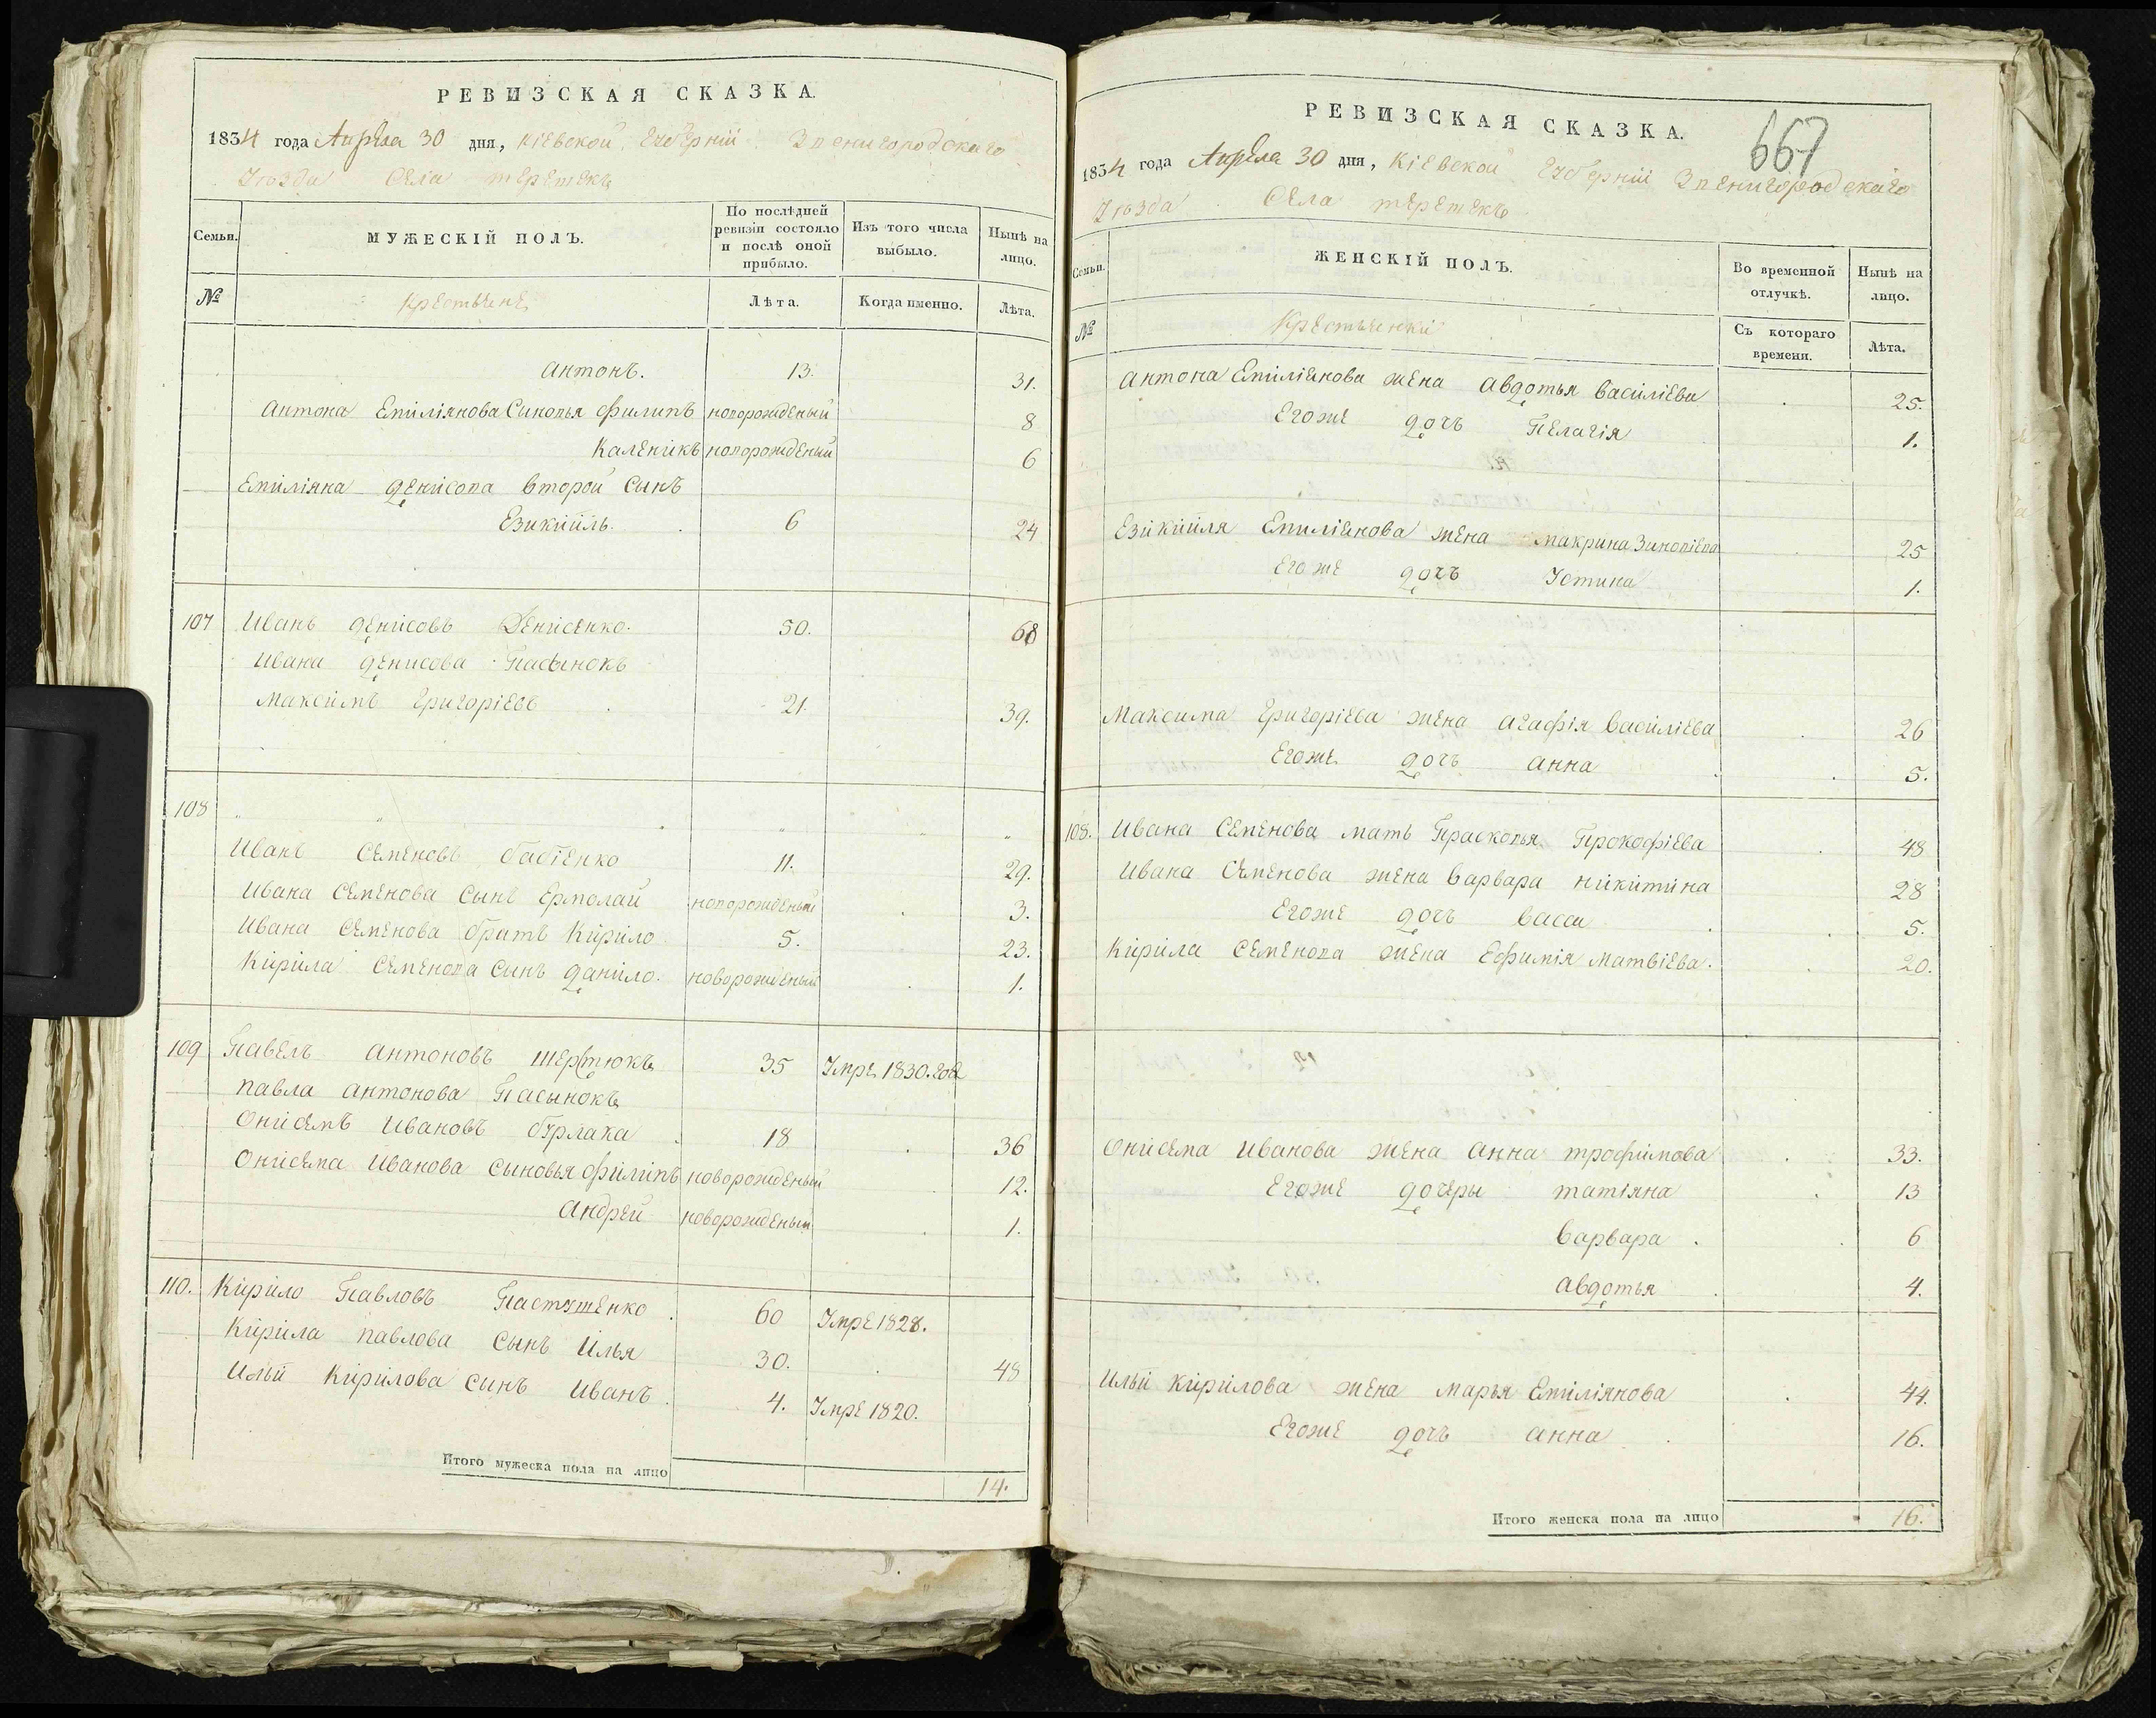 РЕВИЗСКАЯ СКАЗКА.
1834 года Апреля 30 дня, Кіевской Губерніи Звенигородскаго
Уюзда Села терешекъ
Семьи. МУЖЕСКІЙ ПОЛЪ. По послѣдней ревизіи состояло и послѣ оной прибыло. Изъ того числа выбыло. Нынѣ на лицо.
№ Крестьяне Лѣта. Когда именно. Лѣта.
Антонъ. 13. 31.
Антона Емиліянова Синовья Филипъ новорожденый 8
Каленикъ новорожденый 6
Емиліяна Денисова второй сынъ
Езикіиль. 6 24
107 Иванъ Денисовъ Денисенко. 50. 68
Ивана Денисова Пасынокъ
Максимъ Григоріевъ 21. 39.
108 „ „ „ „ „
Иванъ Семеновъ Бабіенко 11. 29.
Ивана Семенова Сынъ Ермолай новорожденый 3.
Ивана Семенова братъ Кирило 5. 23.
Кирила Семенова Сынъ Данило. новорожденый 1.
109 Павелъ Антоновъ 35 Умре 1830. года
Павла Антонова Пасынокъ
Онисемъ Ивановъ бурлака 18 36
Онисема Иванова Сыновья Филипъ новорожденый 12.
Андрей новорожденый 1.
110. Кирило Павловъ Пастушенко 60 Умре 1828.
Кирила Павлова Сынъ Илья 30. 48
Ильи Кирилова Сынъ Иванъ 4. Умре 1820.
Итого мужеска пола на лицо 14.
РЕВИЗСКАЯ СКАЗКА.
667
1834 года Апреля 30 дня, Кіевской Губерніи Звенигородскаго
Уюзда Села терешекъ
Семьи. ЖЕНСКІЙ ПОЛЪ. Во временной отлучкѣ. Нынѣ на лицо.
№ Крестьянки Съ котораго времени. Лѣта.
Антона Емиліянова жена Авдотья Василіева 25.
Егоже дочь Пелагія 1.
Езикіиля Емиліянова жена Макрина Зиновіева 25
Егоже дочь Устина 1.
Максима Григоріева жена Агафія Василіева 26
Егоже дочь Анна 5.
108. Ивана Семенова мать Прасковья Прокофіева 48
Ивана Семенова жена Варвара Никитина 28
Егоже дочь Васса 5.
Кирила Семенова жена Ефимія Матвіева. 20.
Онисема Иванова жена Анна Трофимова 33.
Егоже дочеры Татіяна 13
Варвара 6
Авдотья 4.
Ильи Кирилова жена Марья Емиліянова 44.
Егоже дочь Анна 16.
Итого женска пола на лицо 16.